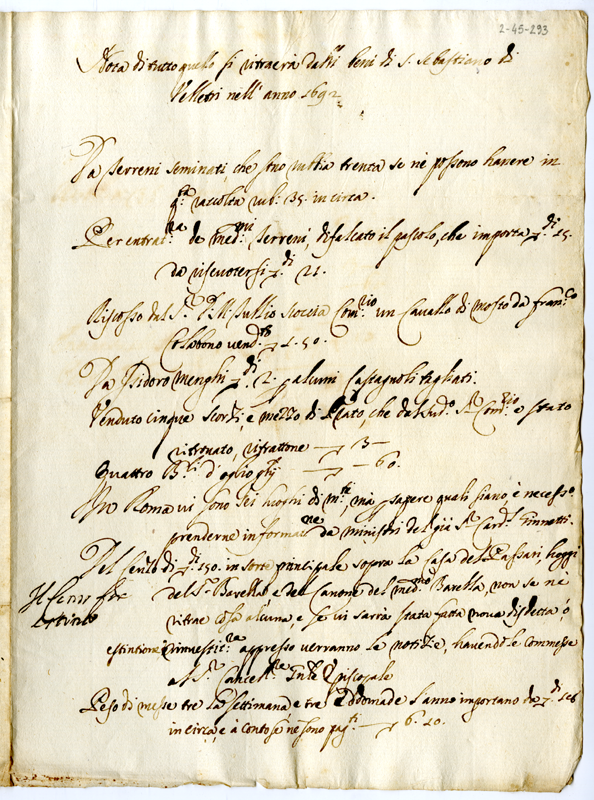 2-45-293
Nota di tutto quello si ritraerà dalli beni di S. Sebastiano di
Velletri nell'anno 1692
Da terreni seminati che sono rubbia trenta se ne possono havere in
raccolta rub: 35. in circa.
Per entrat:ra de med:mi terreni, difalcato il pascolo, che importa di 25.
da riscuotersi di 21.
Riscosso dal S.r Tullio Com:rio un Cavallo di mosto da Fran:co
Colabono vend:to 1.50.
Da Isidoro Menghi di 2. p alcuni Castagnoli tagliati.
Venduto cinque scorzi e mezzo di, che dal sud:o S.r Com:rio è stato
ritrovato, 13
Quattro B:li d'oglio 60.
In Roma vi sono sei luoghi di m:te, mà p sapere quali siano è necess:o
prenderne informat:ne da ministri del già S.r Card: Ginnetti.
Del Censo di 150. in sorte principale sopra la Casa del Passari, hoggi
del S.r Barella, e del Canone del med:mo Barella, non se ne
Il Censo fu
estinto
ritrae cosa alcuna, e se vi sarià stata fatta nova disdetta, ò
estintione, rinvestit:ra appresso verranno le notitie, havendole commesse
al S.r Cancell:re Episcopale
Peso di messe tre la settimana e tre Ebdomade l'anno importano da di
in circa, e à conto se ne sono pag:ti 6.20.